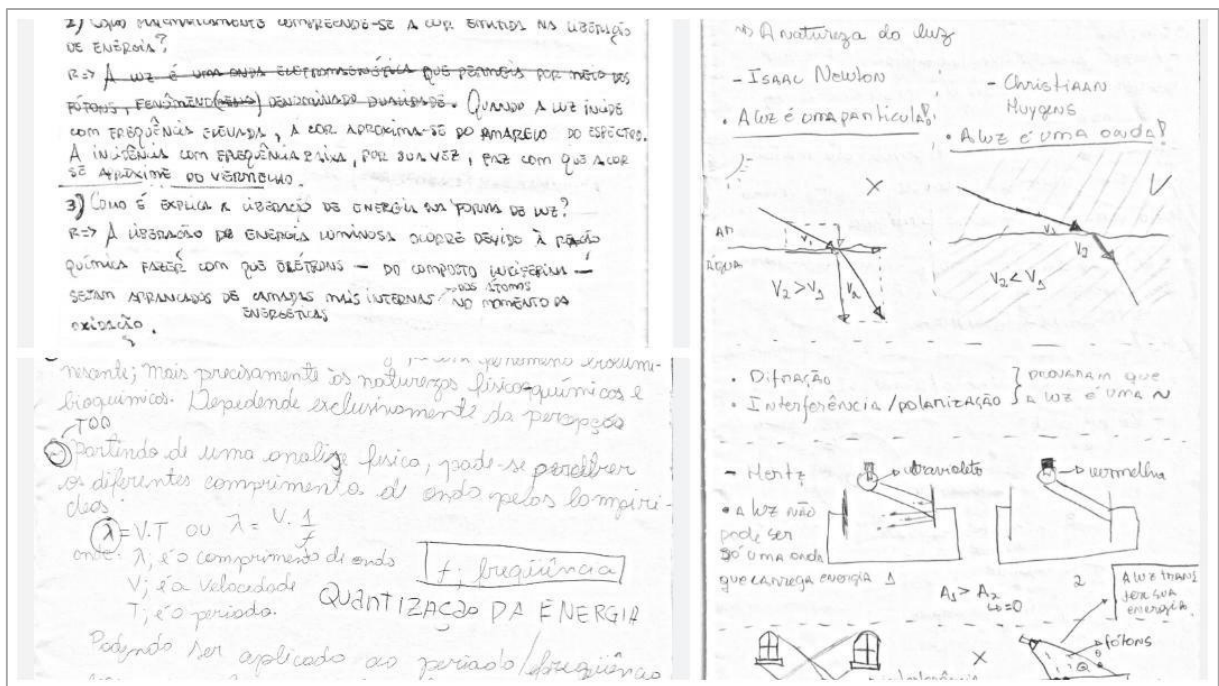 2) Como matematicamente compreende-se a cor emitida na liberação
de energia?
R=> A luz é uma onda eletromagnética que permeia por meio dos
fótons, fenômeno denominado dualidade. Quando a luz incide
com frequência elevada, a cor aproxima-se do amarelo do espectro.
A incidência com frequência baixa, por sua vez, faz com que a cor
se aproxime do vermelho.
3) Como é explica a liberação de energia na forma de luz?
R=> A liberação de energia luminosa ocorre devido à reação
química fazer com que elétrons – do composto luciferina –
sejam arrancados de camadas mais internas dos átomos no momento da
energéticas
oxidação.
fenômeno
nescente; mais precisamente às naturezas físico-químicas e
bioquímicas. Depedende exclusivamente da
Partindo de uma analize fisica, pode-se percebrer
os diferentes comprimentos de onda pelos
deos
λ = V.T ou λ = V. 1/f
onde: λ; é o comprimento de onda
f; freqüência
V; é a velocidade
T; é o periodo.
QUANTIZAÇÃO DA ENERGIA
Podendo ser aplicado ao período/freqüência
=> A natureza da luz
- Isaac Newton
- Christiaan
Huygens
• A luz é uma partícula!
• A luz é uma onda!
X
V
Ar
Água
V1
V2 > V1
V2
V1
V2
V2 < V1
• Difração
• Interferência/polarização
} provaram que
a luz é uma ~
- Hertz
ultravioleta
vermelha
• A luz não
pode ser
só uma onda
que carrega energia
1
2
A1 > A2
=0
A luz trans
fere sua
energia
fótons
X